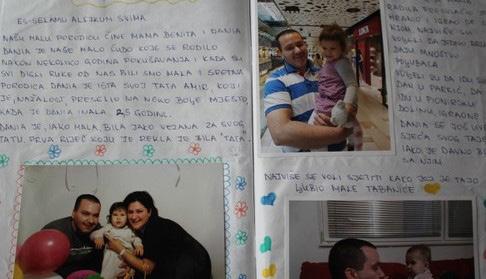 ES-SELAMU ALEJKUM SVIMA
NAŠU MALU PORODICU ČINE MAMA DENITA I DANIA
DANIA JE NAŠE MALO ČUDO KOJE SE RODILO
NAKON NEKOLIKO GODINA POKUŠAVANJA I KADA SU
SVI DIGLI RUKE OD NAS BILI SMO MALA I SRETNA
PORODICA DANIA JE ISTA SVOJ TATA AMIR, KOJI
JE, NAŽALOST, PRESELIO NA NEKO BOLJE MJESTO,
KADA JE DANIA IMALA 2,5 GODINI.
DANIA JE, IAKO MALA, BILA JAKO VEZANA ZA SVOG
TATU, PRVA RIJEČ KOJU JE REKLA JE BILA "TATA".
RADILA
HRANIO I IGRAO SE S
VOLILI
DAR U PARKIĆ, DA
IDU U PIONIRSKU
DOLINU, IGRAONE
DANIA SE JOŠ UVIJEK
SJEĆA SVOG TATE
IAKO JE DAVNO BILA
SA NJIM
NAJVIŠE SE VOLI SJETITI KAKO JOJ JE TAJO
LJUBIO MALE TABANIĆE